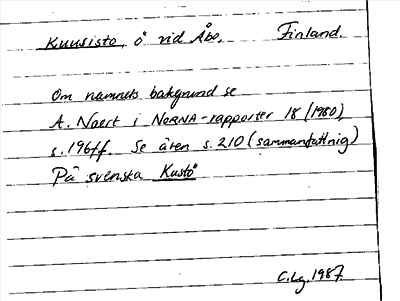 Kuusisto, ö vid Åbo, Finland.
Om namnets bakgrund se
A. Naert i NORNA-rapporter 18 (1980),
s. 196ff. Se även s. 210 (sammanfattnig)
På svenska Kustö
C.Lg. 1987